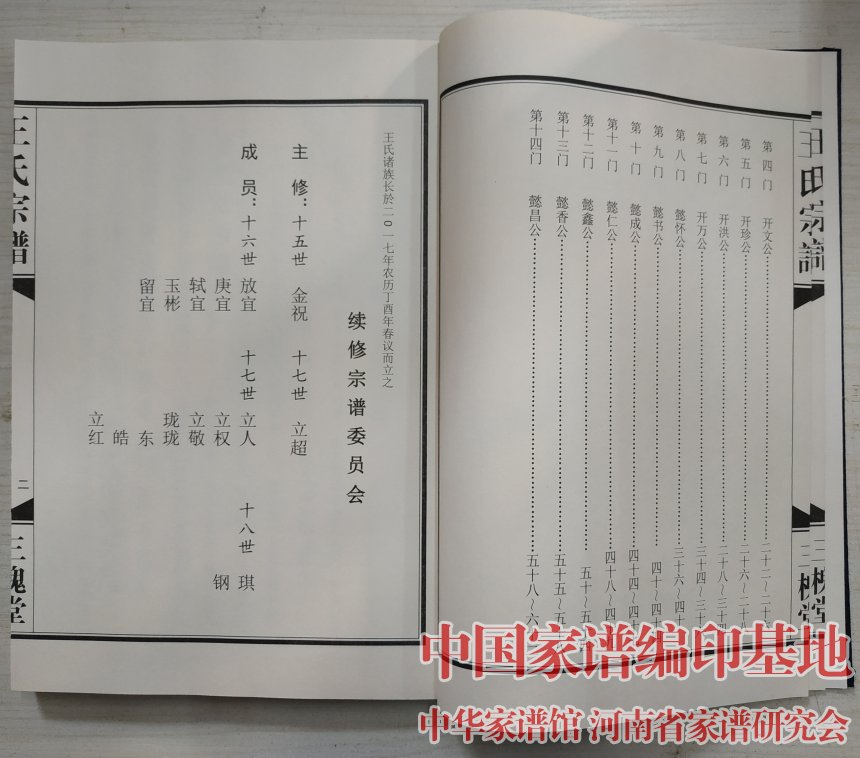 王氏宗谱
三槐堂
第四门 开文公……二十二～二十
第五门 开珍公……二十六～二十八
第六门 开洪公……二十八～三十四
第七门 开万公……三十四～三十
第八门 懿怀公……三十六～四十
第九门 懿书公……四十～四十
第十门 懿成公……四十四～四十
第十一门 懿仁公……四十八～四
第十二门 懿鑫公……五十～五
第十三门 懿香公……五十五～五
第十四门 懿昌公……五十八～六
王氏诸族长於二0一七年农历丁酉年春议而立之
续修宗谱委员会
主修：十五世 金祝 十七世 立超
成员：十六世 放宜 十七世 立人 十八世 琪
庚宜 立权 钢
轼宜 立敬
玉彬 珑珑
留宜 东
皓
立红
王氏宗谱
二
三槐堂
中国家谱编印基地
中华家谱馆 河南省家谱研究会